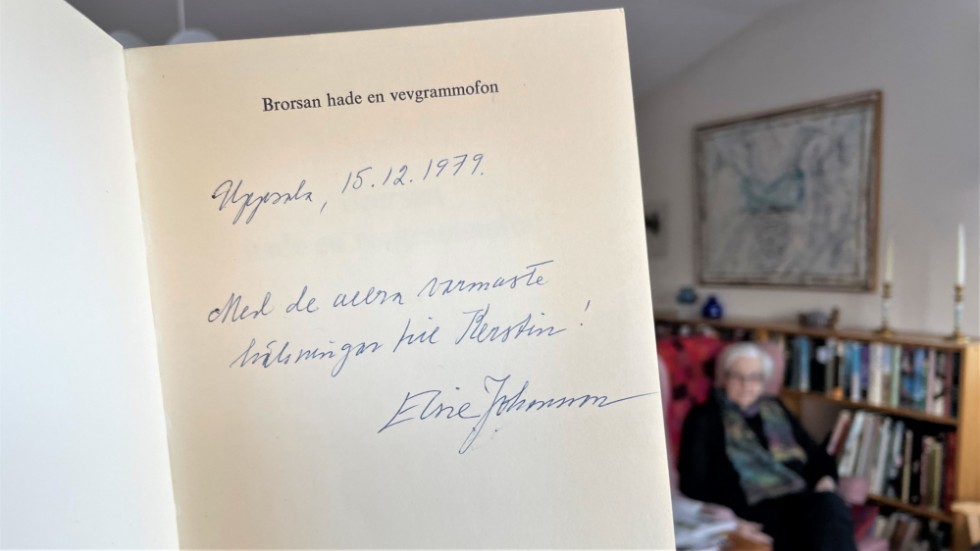 Brorsan hade en vevgrammofon
Uppsala, 15.12.1979.
Med de allra varmaste
hälsningar till Kerstin!
Elsie Johansson